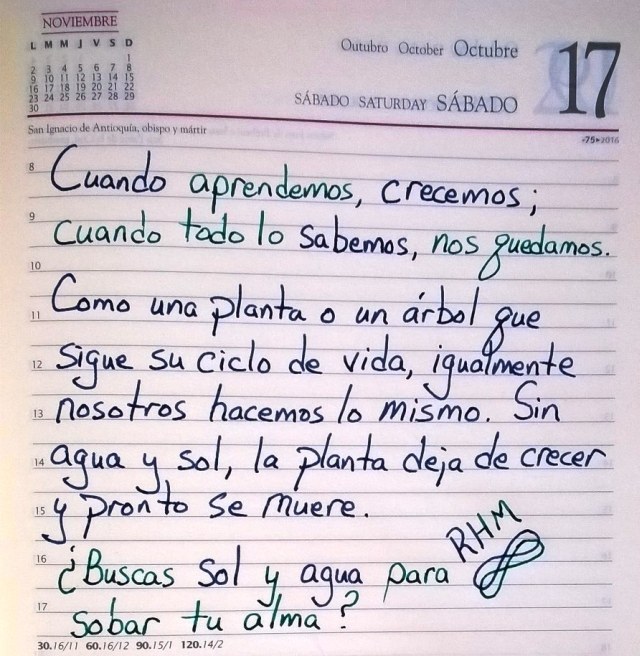 NOVIEMBRE
L M M J V S D
1
2 3 4 5 6 7 8
9 10 11 12 13 14 15
16 17 18 19 20 21 22
23 24 25 26 27 28 29
30
Outubro October Octubre
17
SÁBADO SATURDAY SÁBADO
San Ignacio de Antioquía, obispo y mártir
-75•2016
8 Cuando aprendemos, crecemos;
9 cuando todo lo sabemos, nos quedamos.
10
11 Como una planta o un árbol que
12 sigue su ciclo de vida, igualmente
13 nosotros hacemos lo mismo. Sin
14 agua y sol, la planta deja de crecer
15 y pronto se muere.
RHM
16 ¿Buscas sol y agua para
17 sobar tu alma?
30.16/11 60.16/12 90.15/1 120.14/2